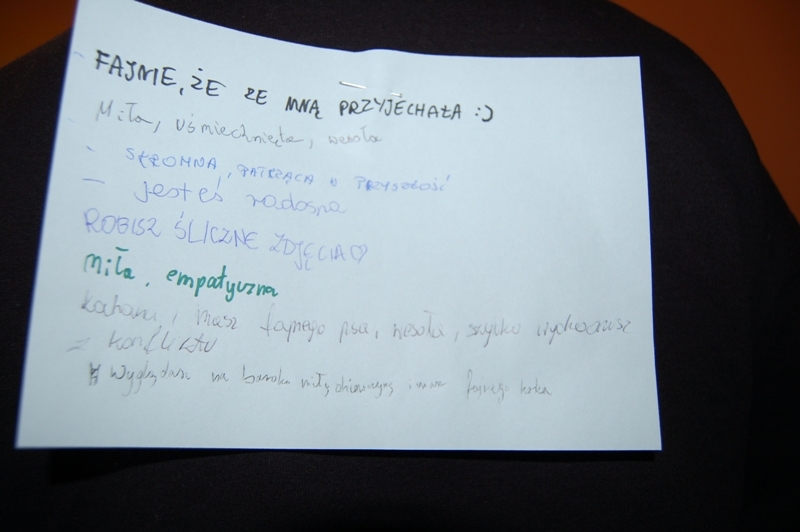 FAJNIE, ŻE ZE MNĄ PRZYJECHAŁA :)
Miła, uśmiechnięta, wesoła
- SKROMNA, PATRZĄCA W PRZYSZŁOŚĆ
- jesteś radosna
ROBISZ ŚLICZNE ZDJĘCIA ♡
miła, empatyczna
masz fajnego psa, wesoła, szybko wychodzisz
z konfliktu
Wyglądasz na bardzo miłą i masz fajnego kota